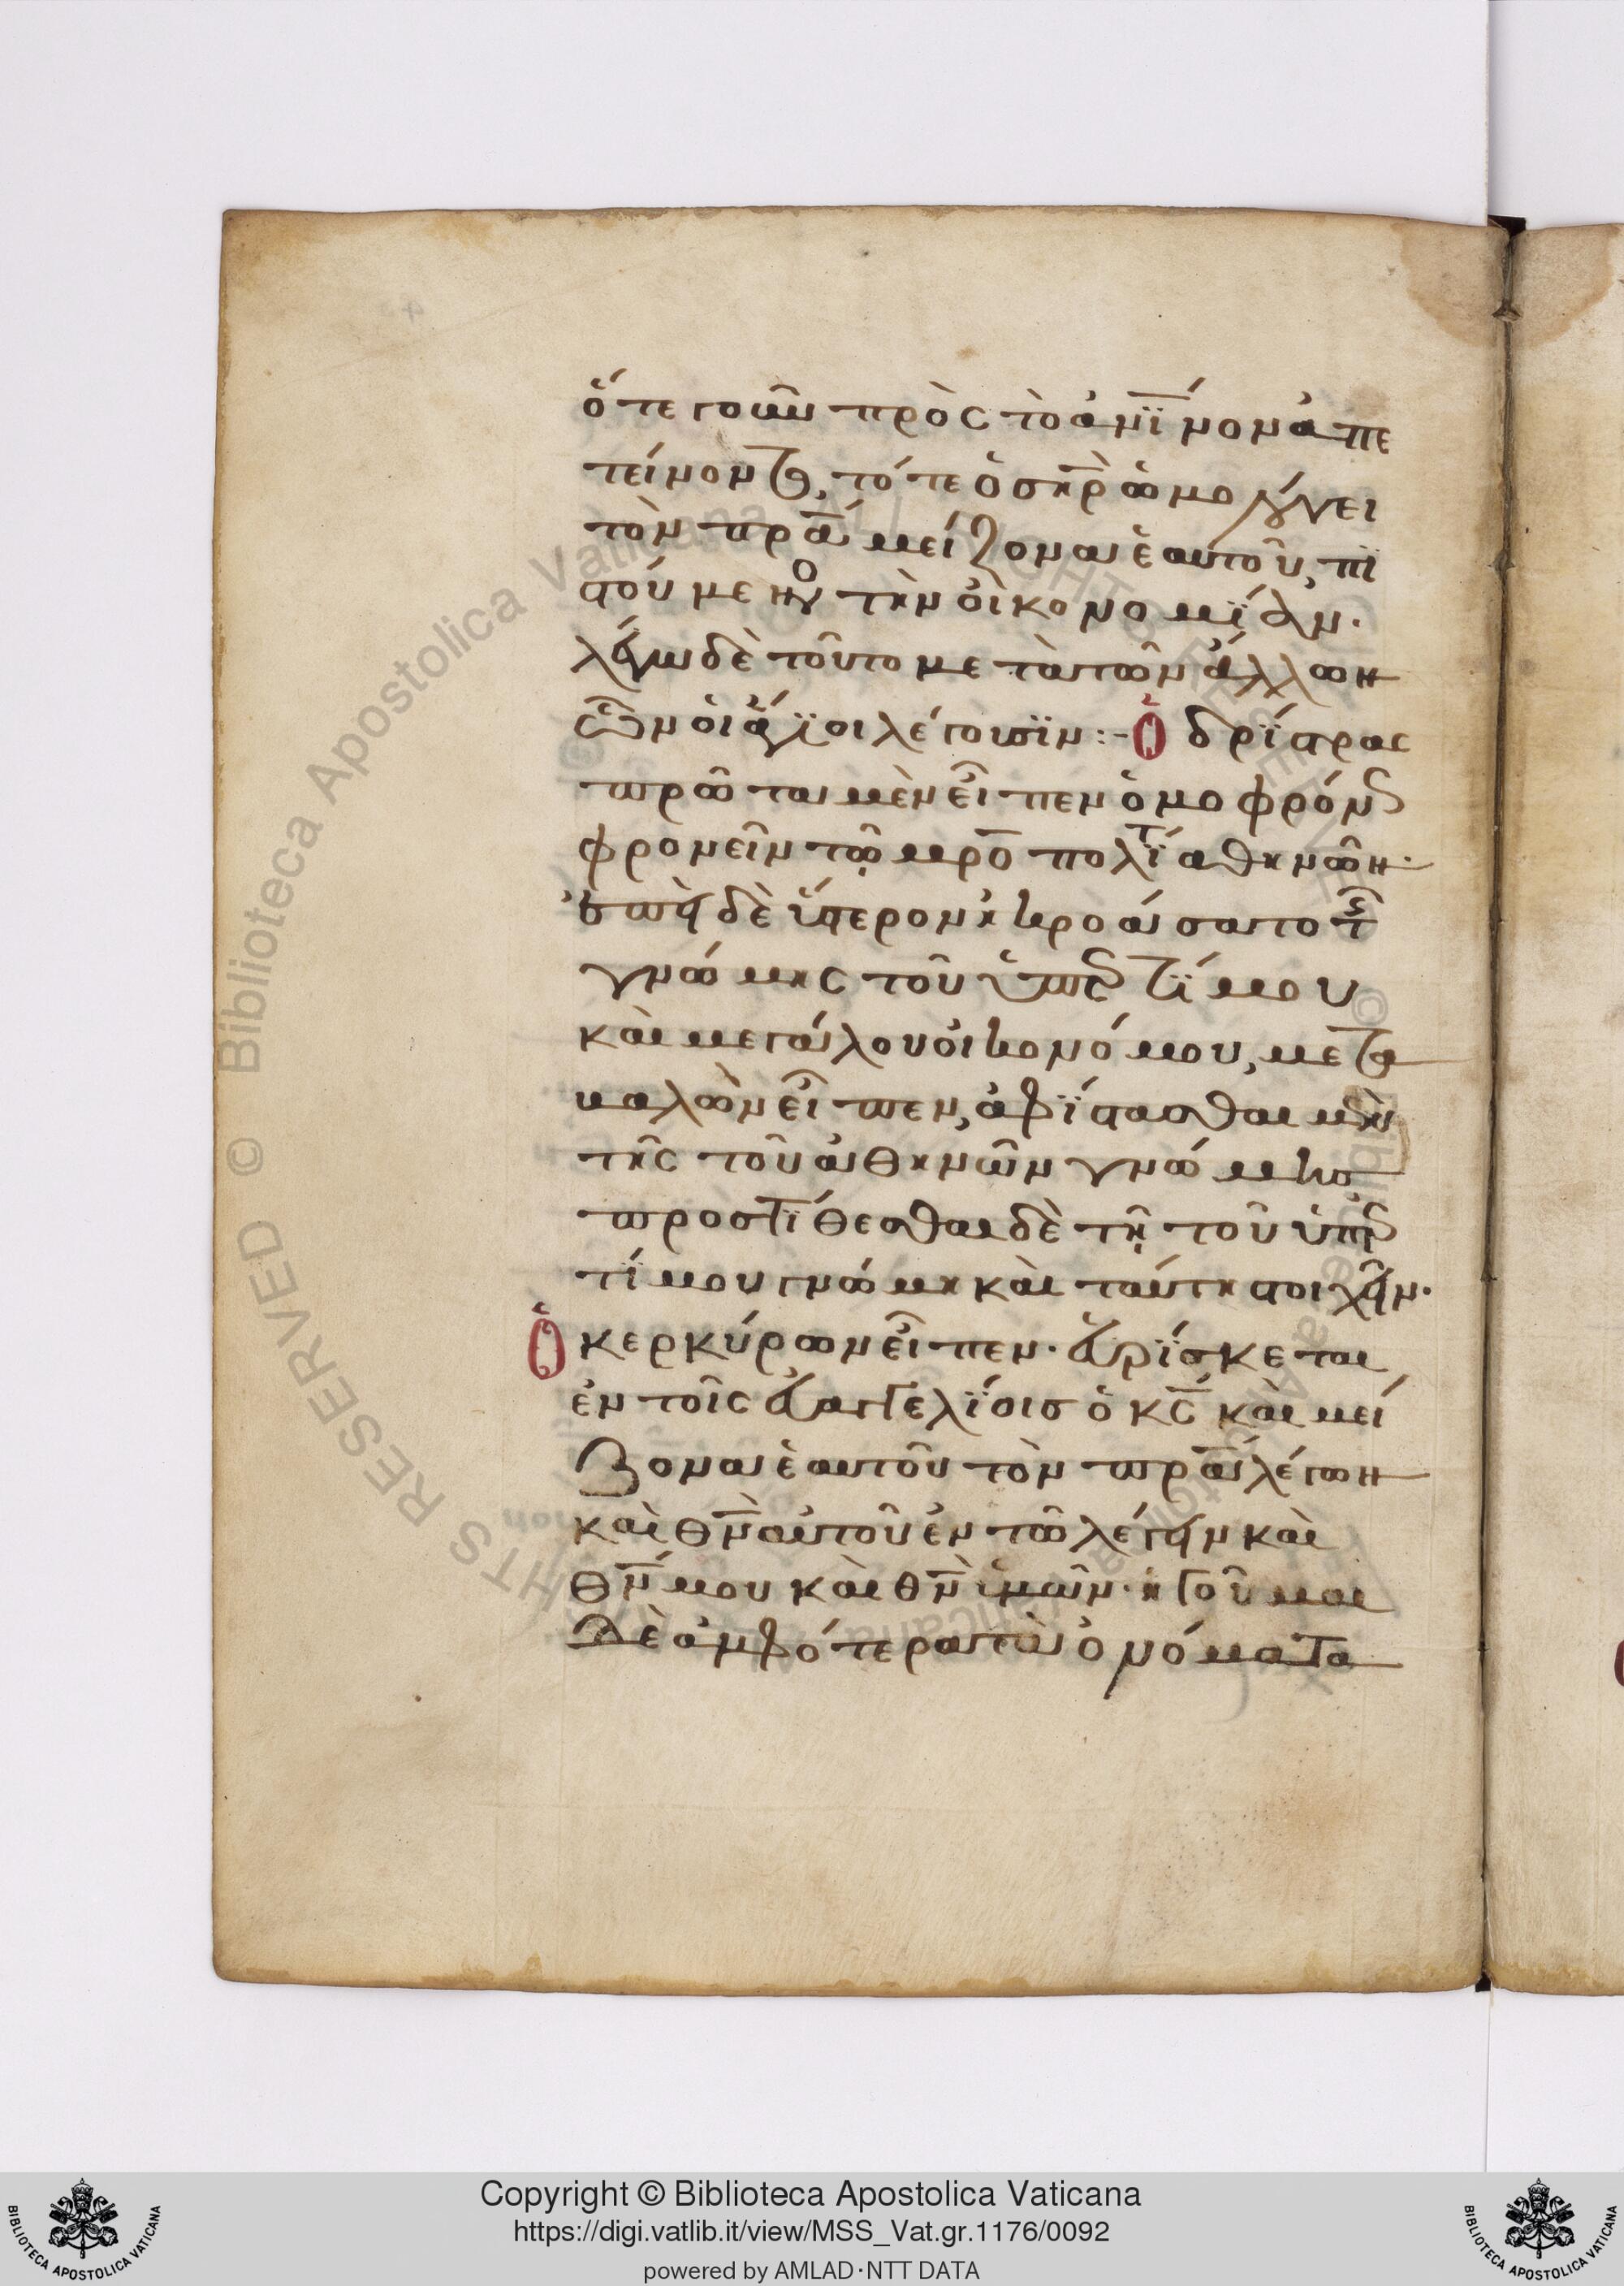 ὅτε γοῦν πρὸς τὸ ἀνί̈νον ἀπε
τείνοντο, τότε ὁ σ̅η̅ρ̅ ὡμολόγει
τὸν π̅ρ̅α̅ μείζονα ἑαυτοῦ, πι
στούμενος τὴν οἰκονομίαν.
λέγω δὲ τοῦτο μετὰ τῶν ἄλλων
ὧν οἱ ἅγιοι λέγουσϊν :- Ὁ δρίστρας
πρῶτα μὲν εἶπεν ὁμοφρόνως
φρονεῖν τῷ μ̅ρ̅ο̅πολίτη ἀθηνῶν.
οὕτως δὲ ὕστερον ἠκροάσατο τῆς
γνώμης τοῦ ὑπερτίμου
καὶ μεγάλου οἰκονόμου, μετα
καλῶν εἶπεν, ἀφίστασθαι μὲν
τῆς τοῦ ἀθηνῶν γνώμης
προστίθεσθαι δὲ τῇ τοῦ ὑπερ
τίμου γνώμη καὶ ταύτη στοιχεῖν.
Ὁ κερκύρων εἶπεν. εὑρίσκεται
ἐν τοῖς εὐαγγελίοισ ὁ κ̅ς̅ καὶ μεί
ζονα ἑαυτοῦ τὸν π̅ρ̅α̅ λέγων
καὶ θ̅ν̅ αὐτοῦ ἐν τῶ λέγειν καὶ
θ̅ν̅ μου καὶ θ̅ν̅ ὑμῶν. ἡγοῦμαι
δὲ ἀμφότερα τὰ ὀνόματα
Copyright © Biblioteca Apostolica Vaticana
https://digi.vatlib.it/view/MSS_Vat.gr.1176/0092
powered by AMLAD·NTT DATA